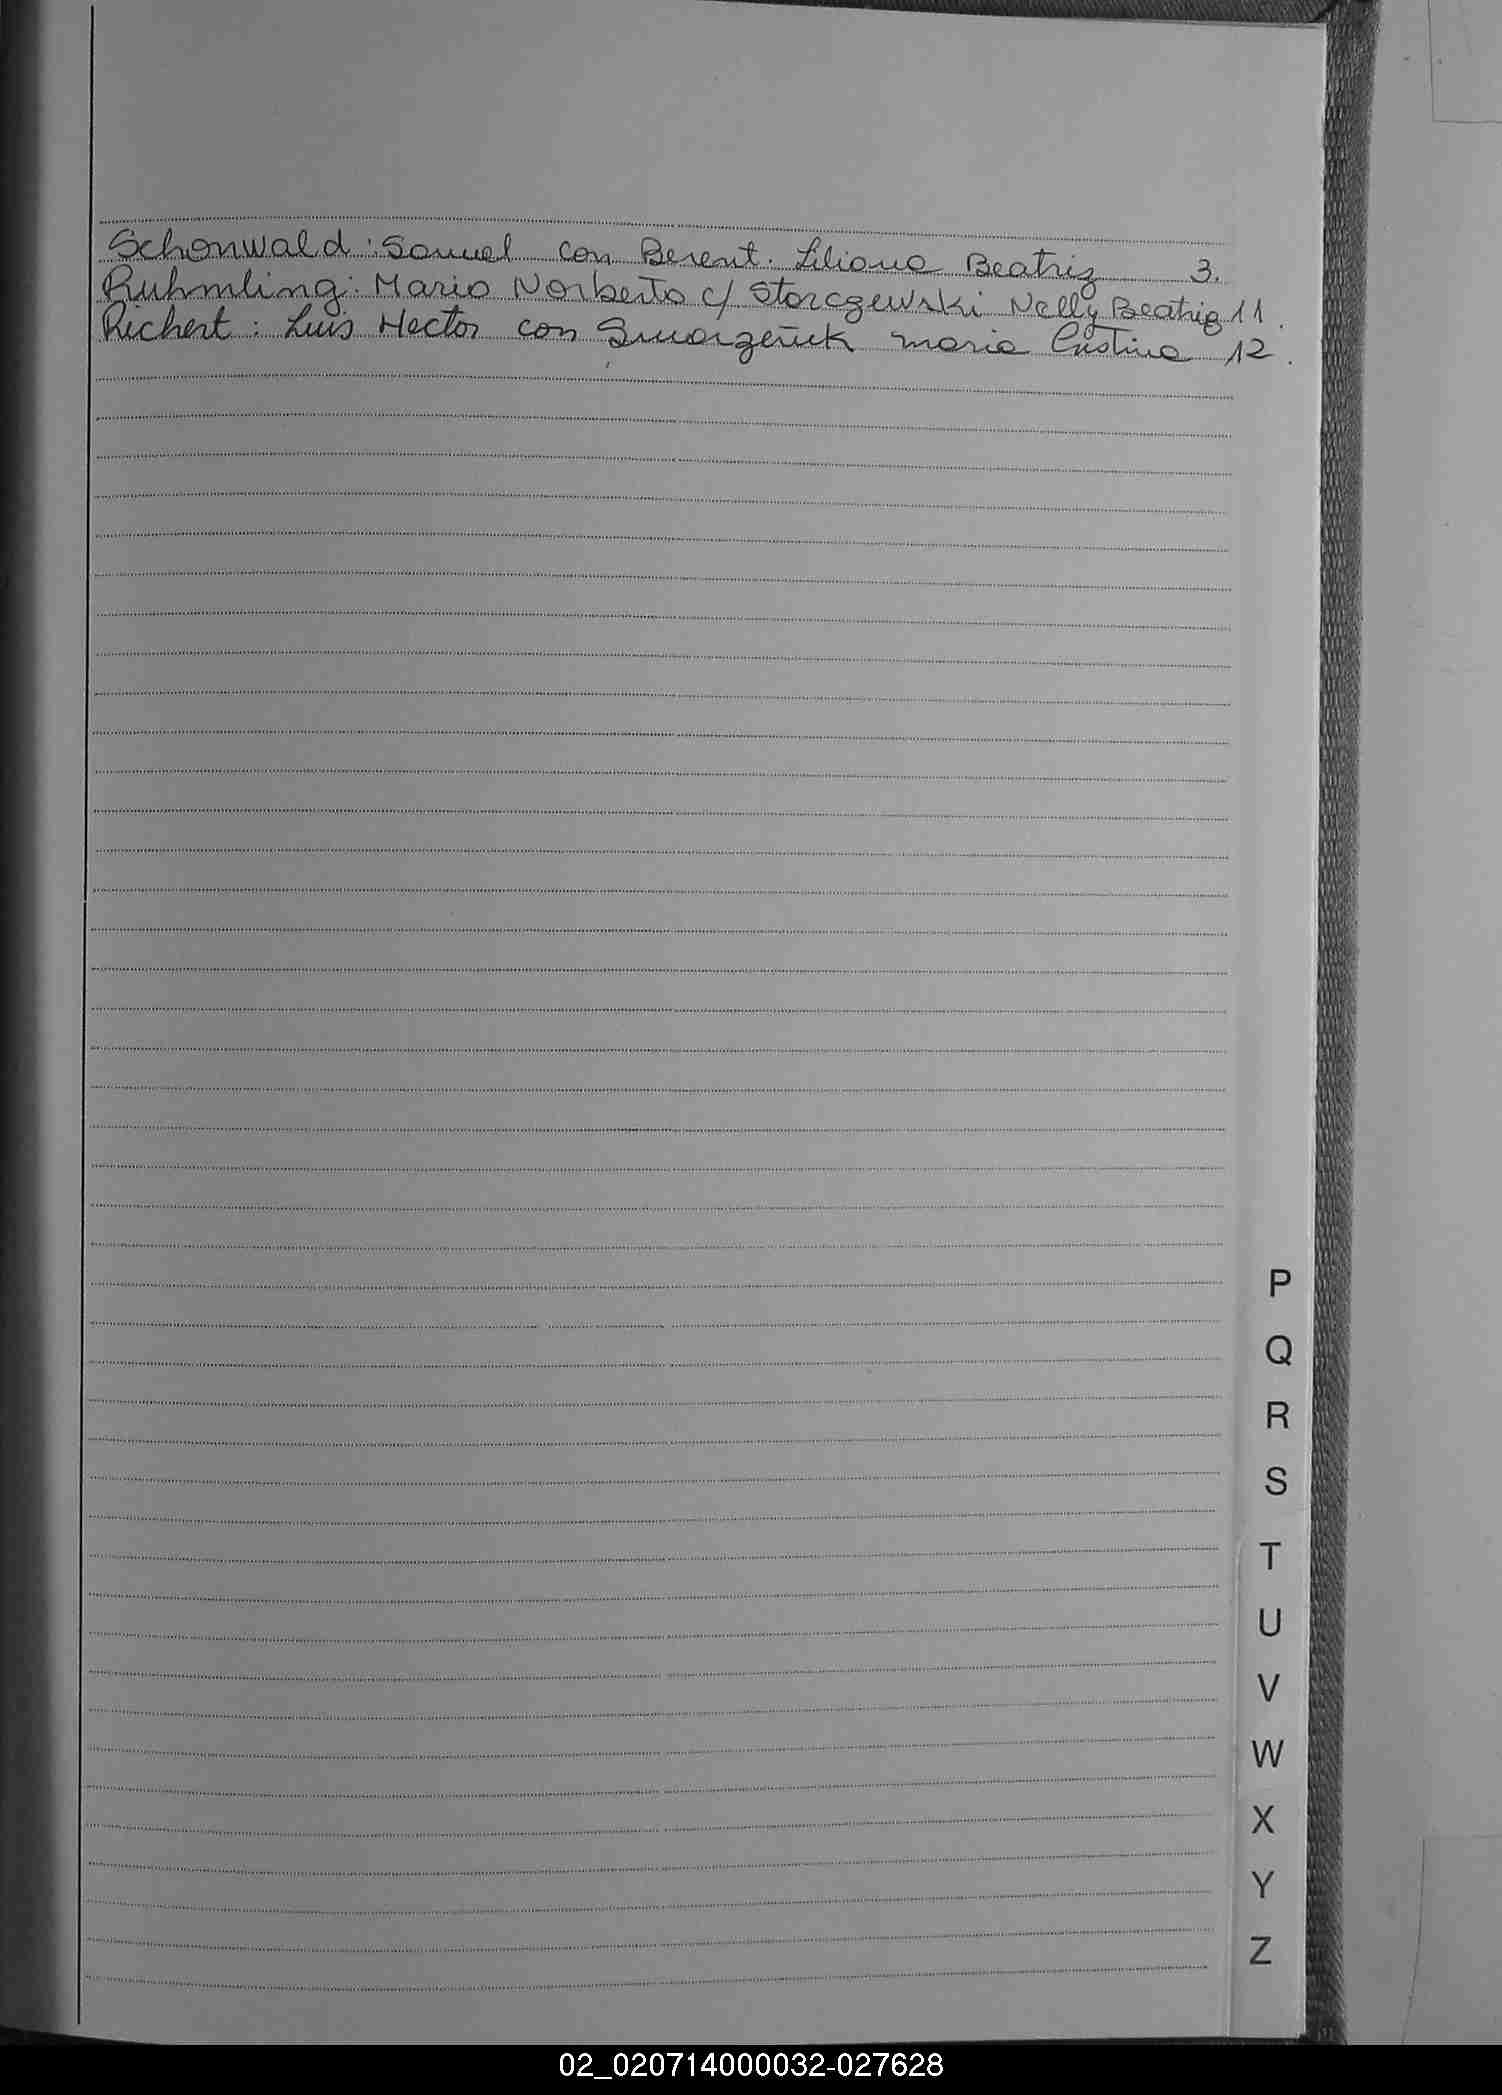 Schonwald: Samuel con Berent. Liliana Beatriz 3.
Ruhmling: Mario Norberto c/ Storczewski Nelly Beatriz 11.
Richert: Luis Hector con Maria Cristina 12.
P
Q
R
S
T
U
V
W
X
Y
Z
02_020714000032-027628